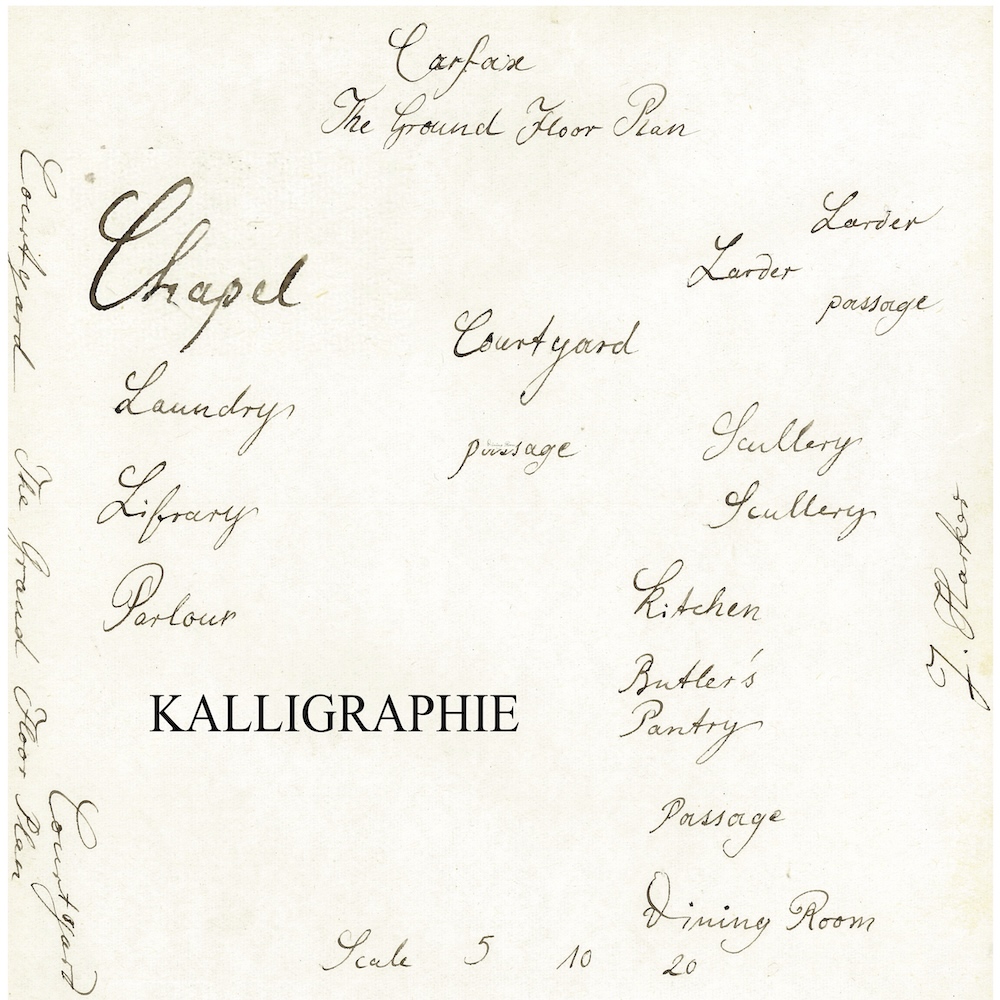 Carfax
The Ground Floor Plan
Larder
Chapel
Larder
passage
Courtyard
Laundry
passage
Scullery
Library
Scullery
Kitchen
Parlour
Butler's
Pantry
KALLIGRAPHIE
Passage
Dining Room
Scale 5 10 20
Courtyard The Grand Floor Plan
Courtyard
J. Harker